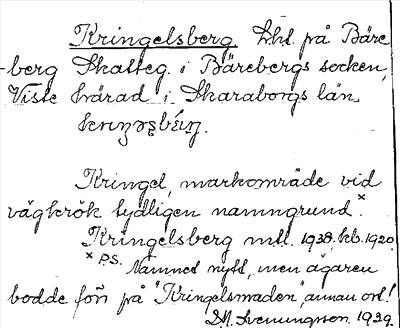 Kringelsberg Lht. på Bäre
-berg Skatteg. i Bärebergs socken,
Viste härad i Skaraborgs län.
Kringel, markområde vid
vägkrök tydligen namngrund.ˣ
Kringelsberg mtl. 1938. kb. 1920.
ˣ P.S.
Namnet nytt, men ägaren
bodde förr på "Kringelsmaden" annan ort!
D.A. Svenningson. 1939.